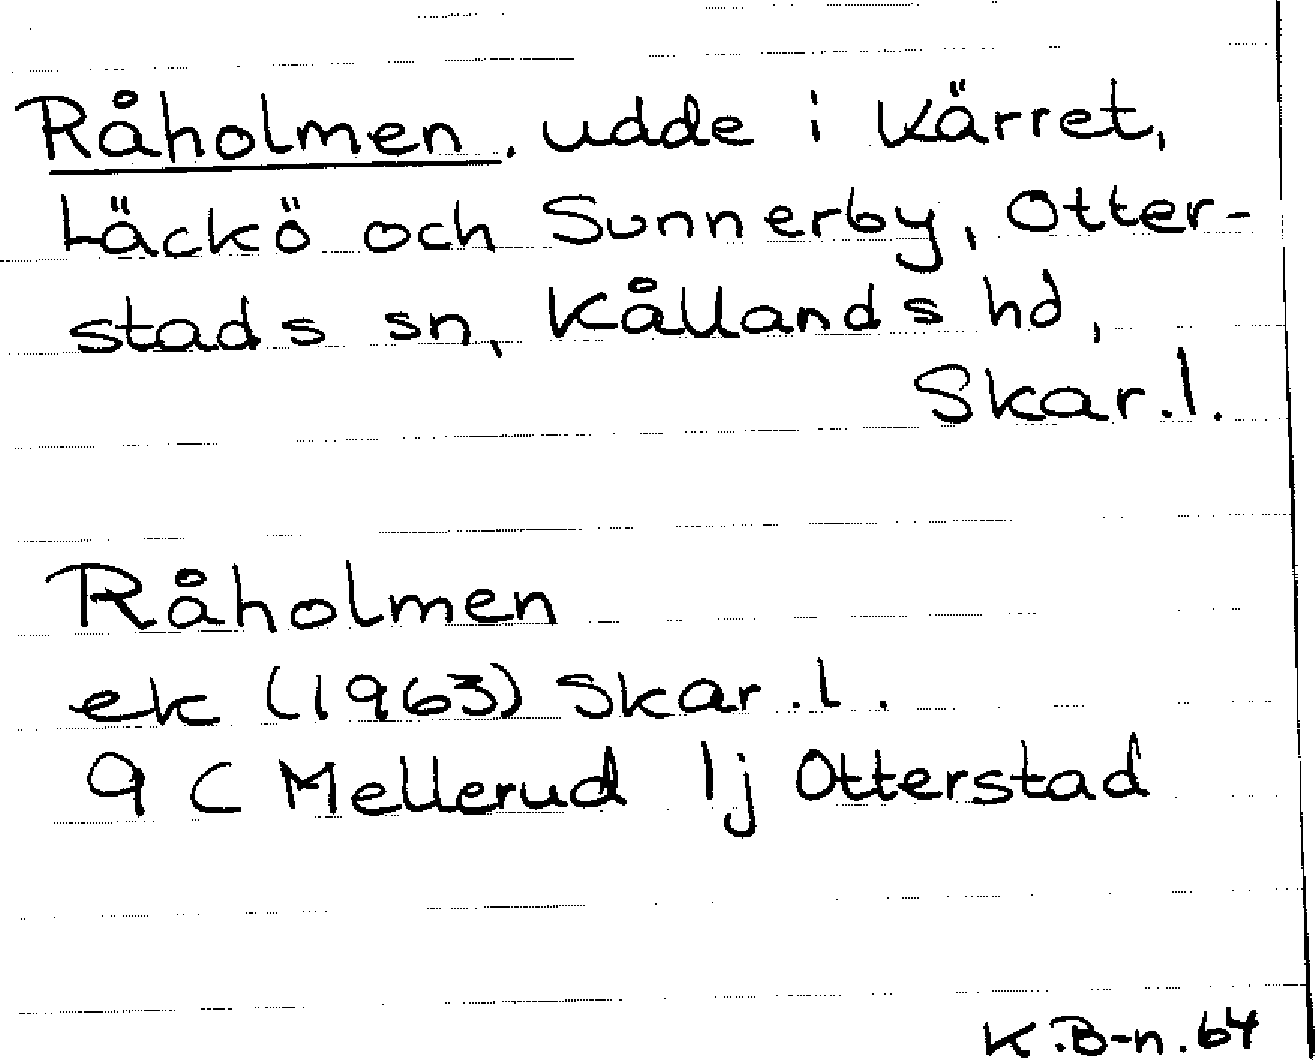 Råholmen, udde i Kärret,
Läckö och Sunnerby, Otter-
stads sn, Kållands hd,
Skar.l.
Råholmen
ek (1963) Skar.l.
9 C Mellerud 1j Otterstad
K.B-n.64